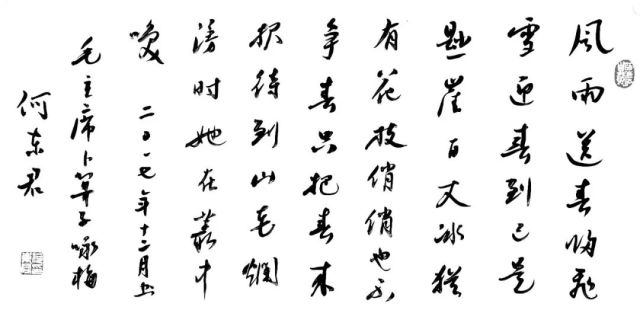 风雨送春归飞
雪迎春到已是
悬崖百丈冰犹
有花枝俏俏也不
争春只把春来
报待到山花烂
漫时她在丛中
笑 二〇一七年十二月书
毛主席卜算子咏梅
何东君